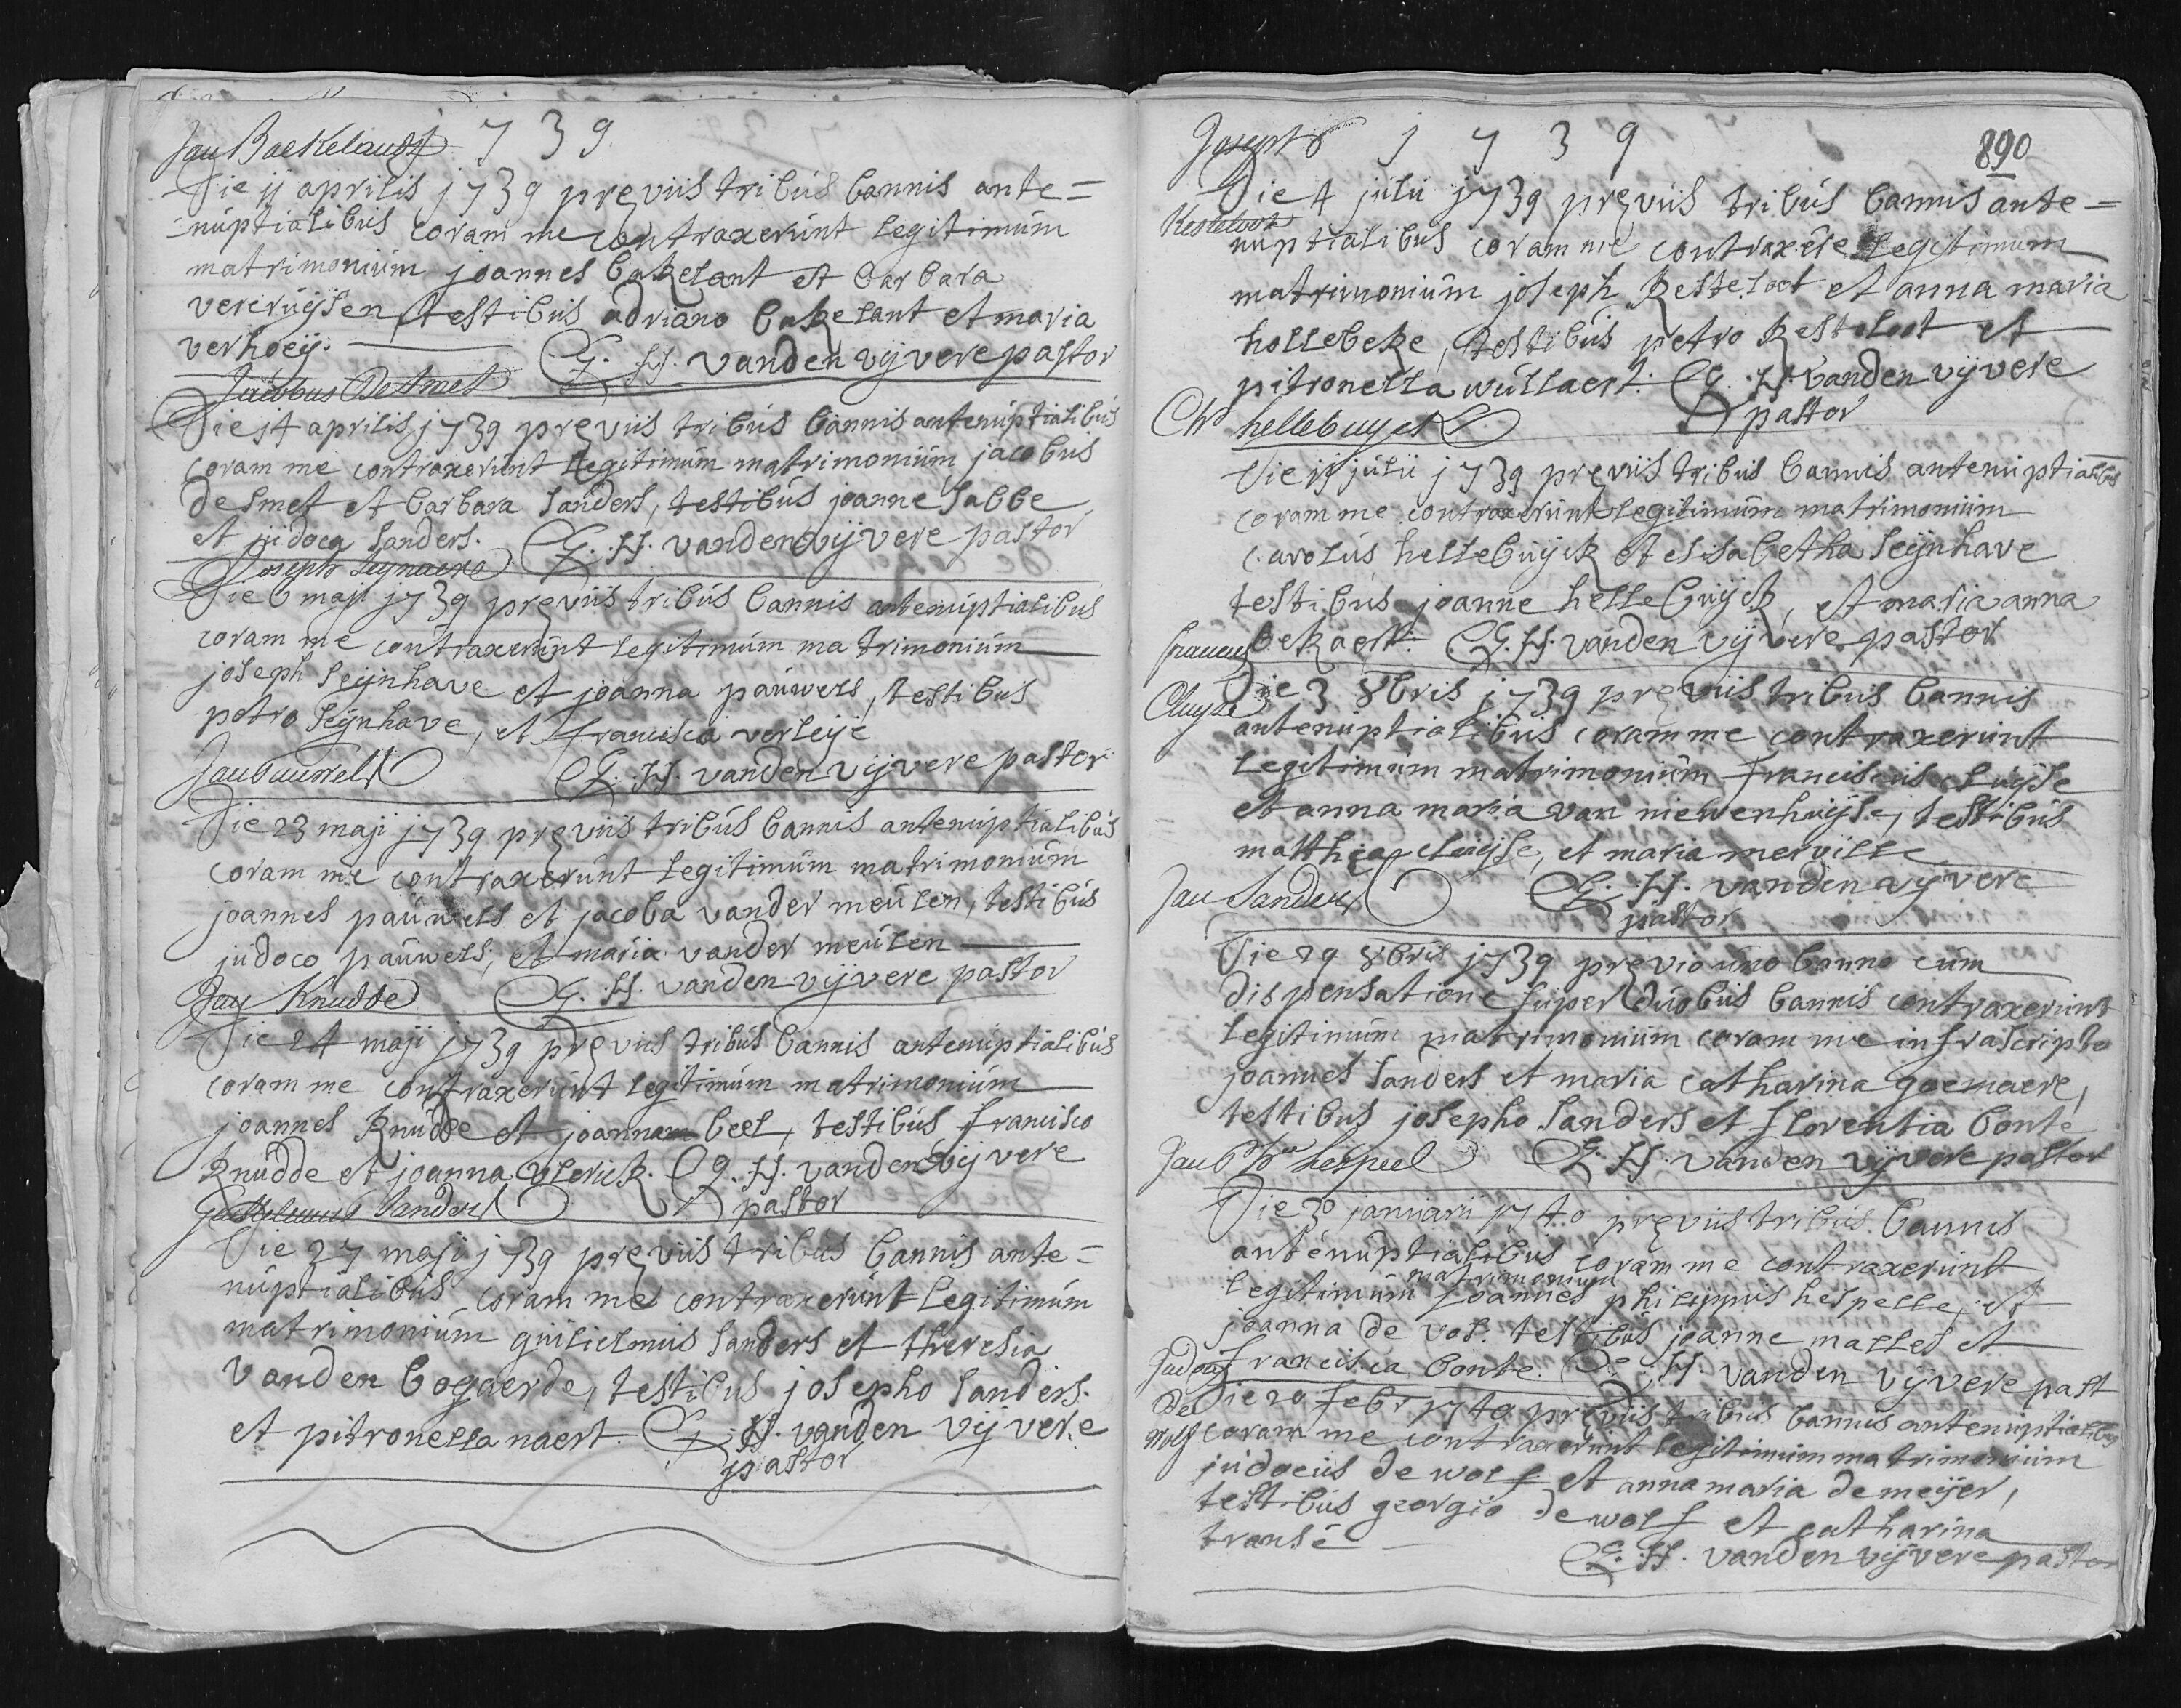 1739
Jan Baekelandt
Die jj aprilis j739 pręviis tribús bannis ante=
=núptialibus coram me contraxerúnt legitimúm
matrimoniúm joannes bakelant et barbara
vercruijsen, testibús adriano bakelant et maria
verhoeij. G. H. vanden vijvere pastor
Jacobus De Smet
Die j4 aprilis j739 pręviis tribús bannis antenúptialibús
coram me contraxerúnt legitimúm matrimoniúm jacobús
de smet et barbara sanders, testibús joanne sabbe
et júdoca sanders. G. H. vanden vijvere pastor
Joseph Seynaeve
Die 6 maji j739 pręviis tribús bannis antenúptialibus
coram me contraxerúnt legitimúm matrimoniúm
joseph seijnhave et joanna paúwels, testibus
petro seijnhave, et francisca verleije
Jan Pauwels G. H. vanden vijvere pastor
Die 23 maji j739 pręviis tribús bannis antenúptialibús
coram me contraxerúnt legitimúm matrimoniúm
joannes paúwels et jacoba vander meúlen, testibús
júdoco paúwels, et maria vander meúlen
Jan Knudde G. H. vanden vijvere pastor
Die 24 maji j739 pręviis tribús bannis antenúptialibús
coram me contraxerúnt legitimúm matrimoniúm
joannes knúdde et joanna beel, testibús francisco
knúdde et joanna olerick. G. H. vanden vijvere
pastor
Guilielmus Sanders
Die 27 maji j739 pręviis tribús bannis ante=
núptialibús coram me contraxerúnt legitimúm
matrimoniúm gúilielmús sanders et theresia
vanden bogaerde, testibus josepho sanders.
et pitronella naert. G. H. vanden vijvere
pastor
Joseph 1739 890
Die 4 júlii j739 pręviis tribús bannis ante=
Kesteloot
núptialibús coram me contraxêre legitimúm
matrimoniúm joseph kesteloot et anna maria
hollebeke, testibús petro kesteloot et
pitronella wúllaert. G. H. vanden vijvere
pastor
hellebuyck
Die jj júlii j739 pręviis tribús bannis antenúptialibus
coram me contraxerúnt legitimúm matrimoniúm
carolús hellebúijck et elisabetha seijnhave
testibús joanne hellebúijck, et maria anna
bekaert. G. H. vanden vijvere pastor
Die 3 8bris j739 pręviis tribús bannis
Cluyse
antenúptialibús coram me contraxerúnt
legitimúm matrimoniúm franciscús clúijse
et anna maria van niewenhúijse, testibús
matthia clúijse, et maria merville
Jan Sanders G. H. vanden vijvere
pastor
Die 29 8bris j739 pręvio úno banno cúm
dispensatione súper dúobús bannis contraxerúnt
legitimúm matrimoniúm coram me infrascripto
joannes sanders et maria catharina goemaere,
testibus josepho sanders et florentia bonte
G. H. vanden vijvere pastor
Die 30 januarii j740 pręviis tribús bannis
antenúptialibús coram me contraxerúnt
legitimúm matrimonium joannes philippús hespelle, et
joanna de vos. testibús joanne malles et
francisca bonte. G. H. vanden vijvere past
Die 20 febr j740 pręviis tribus bannis antenúptialibus
de wolf
coram me contraxerúnt legitimúm matrimoniúm
júdocús de wolf et anna maria de meijer,
testibús georgio de wolf et catharina
transé
G. H. vanden vijvere pastor